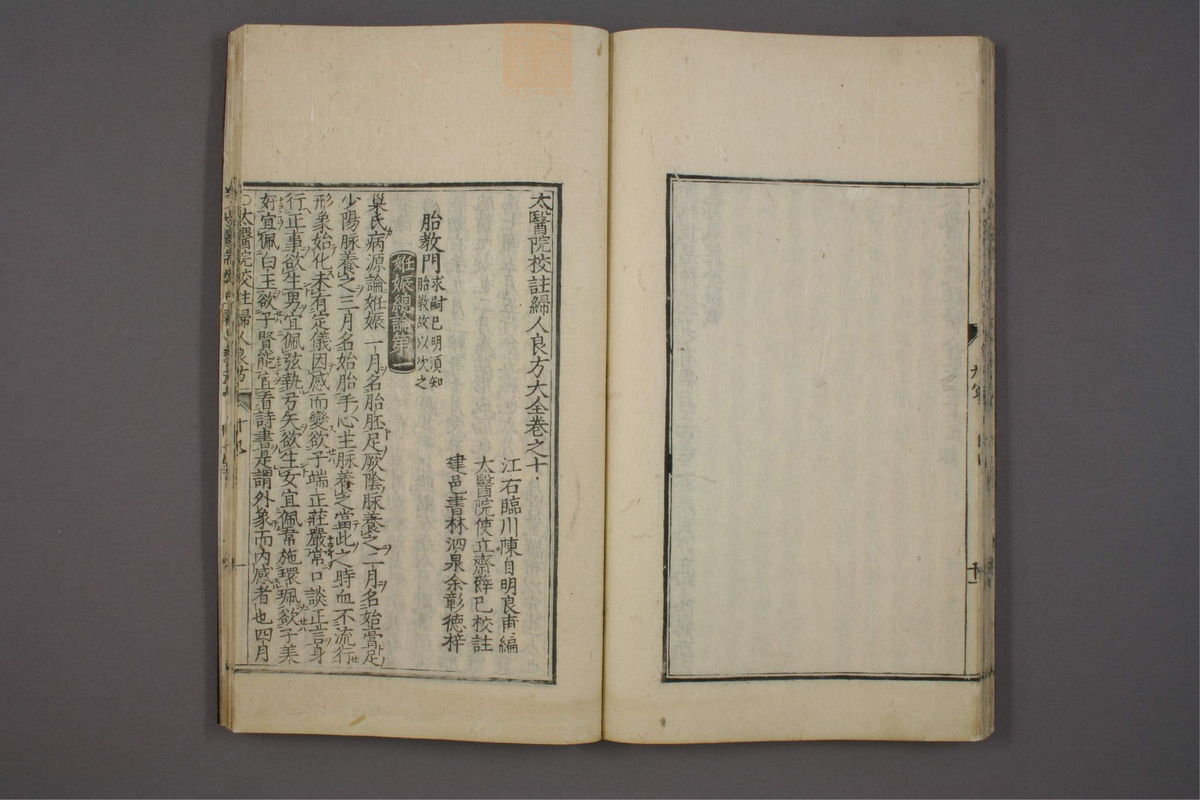 太醫院校註婦人良方大全卷之十
江右臨川陳自明良甫編
太醫院使立齋薛已校註
建邑書林泗泉余彰德梓
胎教門
求嗣已明須知
胎教故以次之
姙娠總論第一
巢氏病源論姙娠一月名胎胚足厥陰脉養之二月名始膏足
少陽脉養之三月名始胎手心主脉養之當此之時血不流行
形象始化未有定儀因感而變欲子端正莊嚴常口談正言身
行正事欲生男宜佩弦執弓矢欲生女宜佩韋施環珮欲子美
好宜佩白玉欲子賢能宜看詩書是謂外象而内感者也四月
○太醫院校註婦人良方